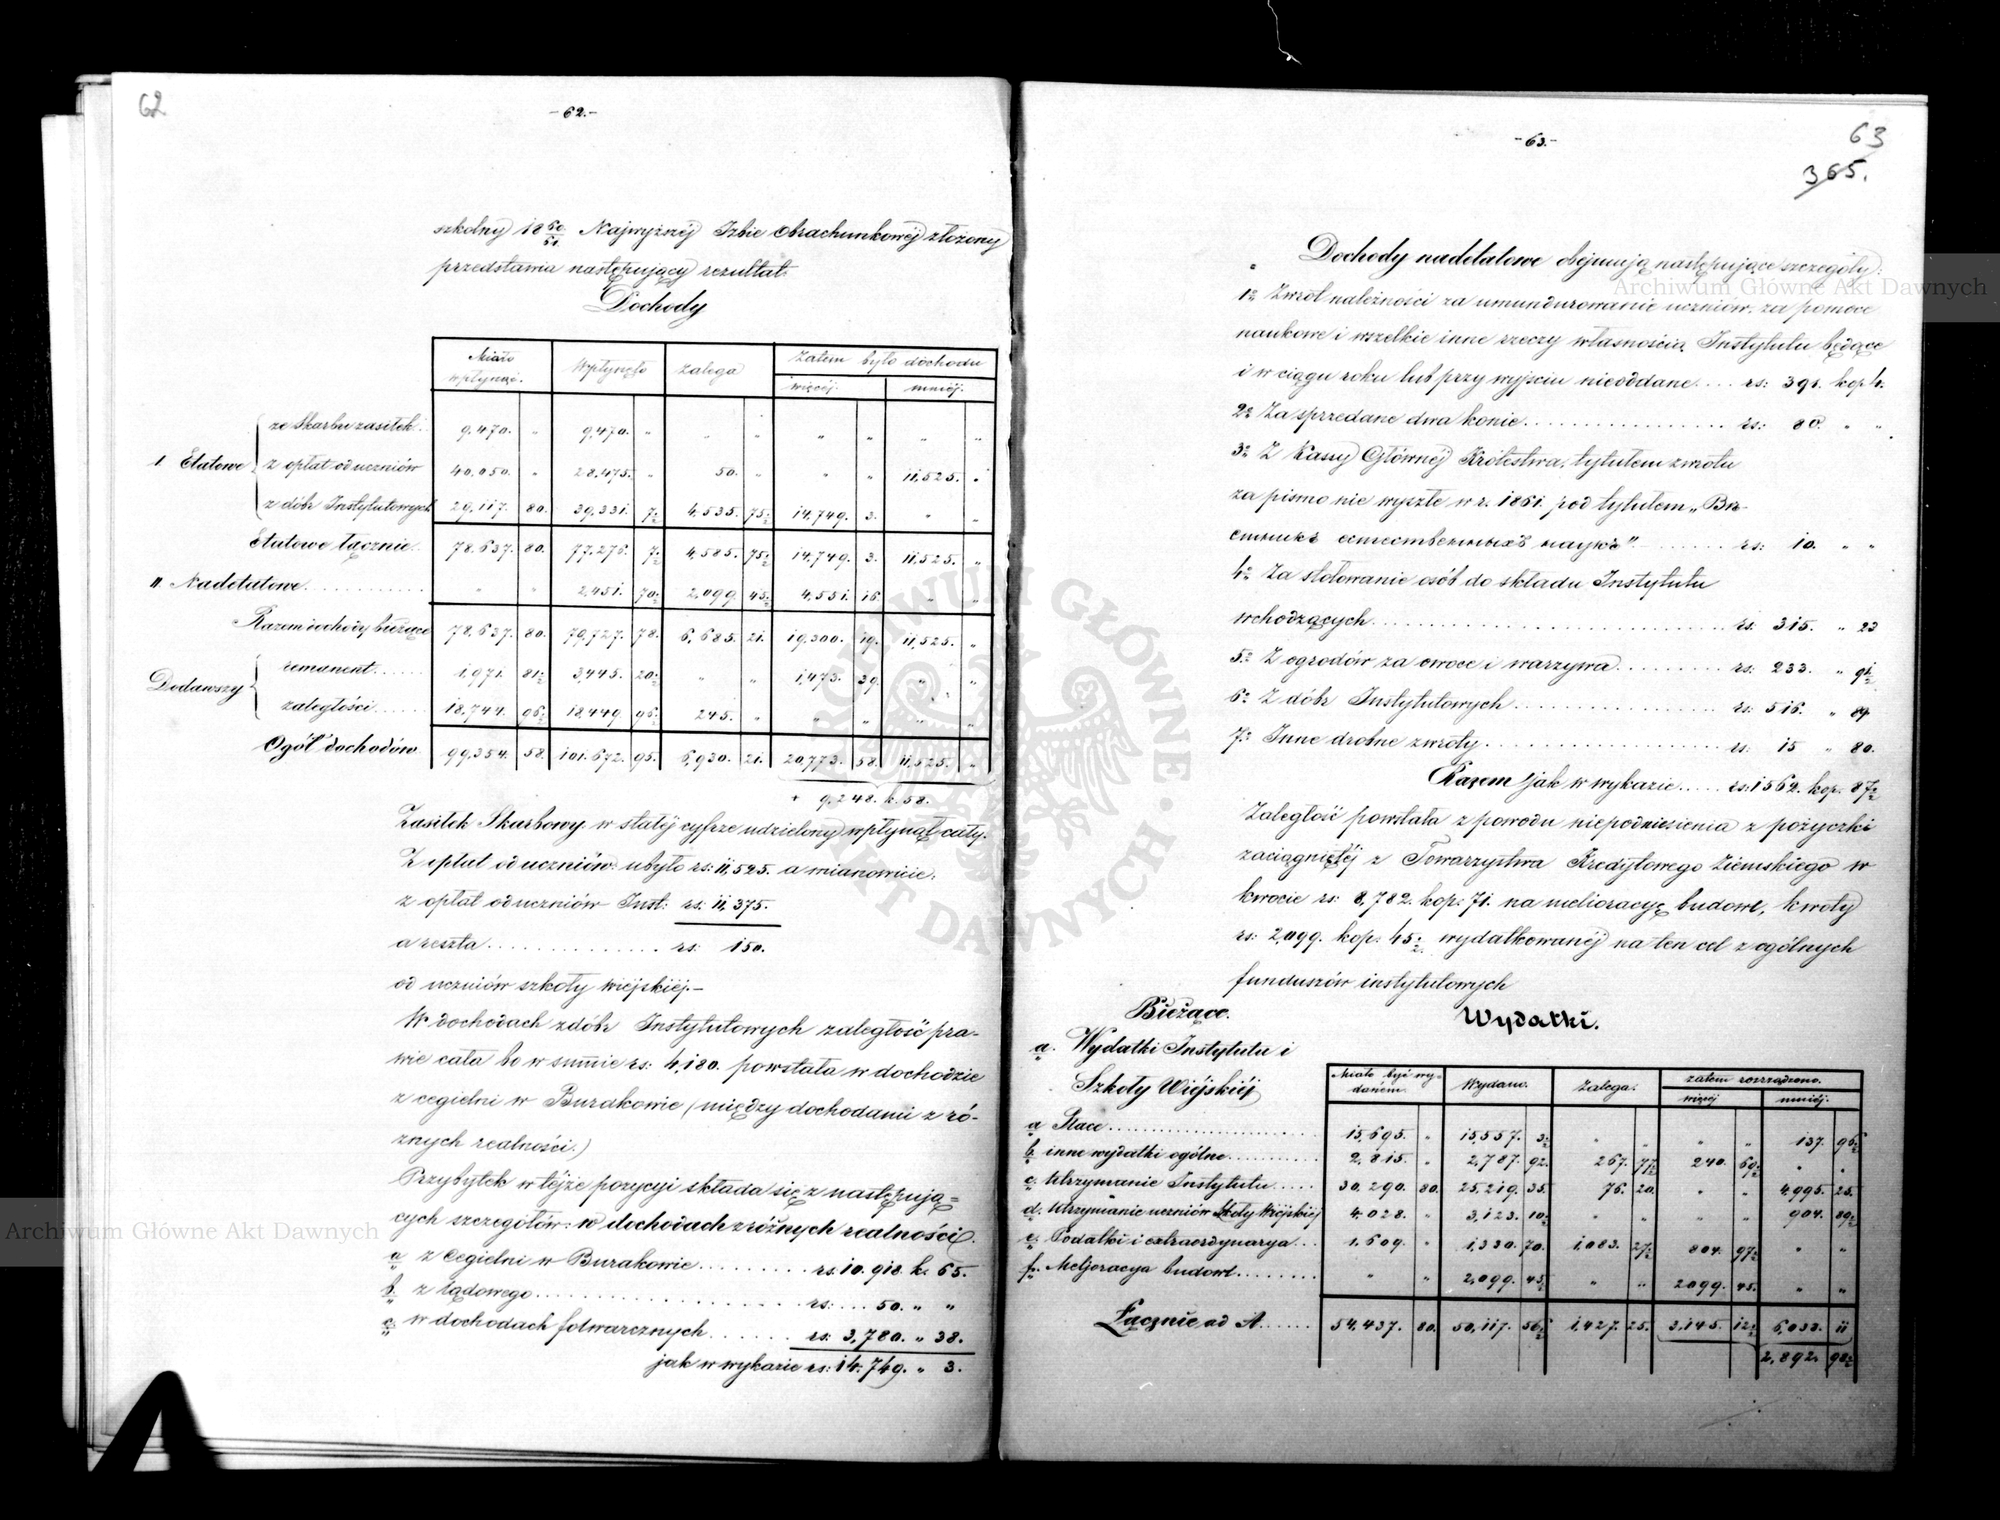 62
-62.-
szkolny 18 60/61. Najwyższéj Izbie Obrachunkowéj złożony
przedstawia następujący rezultat.
Dochody
Miało wpłynąć. Wpłynęło zalega Zatem było dochodu
więcéj. mniéj.
I. Etatowe
ze Skarbu zasiłek.. 9,470. „ 9,470. „ „ „ „ „ „ „
z opłat od uczniów 40,050. „ 28,475. „ 50. „ „ „ 11,525. „
z dóbr Instytutowych 29,117. 80. 39,331. 7½ 4,535. 75½ 14,749. 3. „ „
Etatowe łącznie.. 78.637. 80. 77,276. 7½ 4,585. 75½ 14,749. 3. 11,525. „
II. Nadetatowe........... „ „ 2,451. 70½ 2,099. 45½ 4,551. 16. „ „
Razem dochody bieżące 78,637. 80. 79,727. 78. 6,685. 21. 19,300. 19. 11,525. „
Dodawszy
remanent...... 1,971. 81½ 3,445. 20½ „ „ 1,473. 39. „ „
zaległości...... 18,744. 96½ 18,449. 96½ 245. „ „ „ „ „
Ogół dochodów 99,354. 58. 101.672. 95. 6,930. 21. 20,773. 58. 11,525. „
+ 9,248. k. 58.
Zasiłek Skarbowy w stałéj cyfrze udzielony wpłynął cały.
Z opłat od uczniów ubyło rs: 11,525. a mianowicie:
z opłat od uczniów Inst: rs: 11,375.
a reszta................. rs: 150.
od uczniów szkoły wiejskiéj.-
W dochodach z dóbr Instytutowych zaległość pra-
wie cała bo w summie rs: 4,180. powstała w dochodzie
z cegielni w Burakowie (między dochodami z ró-
żnych realności.)
Przybytek w téjże pozycyi składa się z następują=
cych szczegółów: w dochodach z różnych realności.
a z Cegielni w Burakowie.......... rs. 10. 918. k. 65.
b. z lądowego...................... rs: ... 50. „ „
c. w dochodach folwarcznych........ rs: 3,780. „ 38.
jak w wykazie rs: 14.749. „ 3.
63
-63.-
365.
Dochody nadetatowe obejmują następujące szczegóły:
1º Zwrot należności za umundurowanie uczniów, za pomoce
naukowe i wszelkie inne rzeczy własnością Instytutu będące
i w ciągu roku lub przy wyjściu nieoddane.... rs: 391. kop 4.
2º Za sprzedane dwa konie................. rs: 80. „ „
3º Z Kassy Głównéj Królestwa, tytułem zwrotu
za pismo nie wyszłe w r. 1861. pod tytułem „Вѣ-
стникъ естественныхъ наукъ"......... rs: 10. „ „
4º Za stołowanie osób do składu Instytutu
wchodzących................................. rs: 315. „ 23
5º Z ogrodów za owoce i warzywa.......... rs: 233. „ 91½
6º Z dóbr Instytutowych..................... rs: 516. „ 89.
7º Inne drobne zwroty....................... rs: 15 „ 80.
Razem jak w wykazie..... rs: 1562. kop. 87½
Zaległość powstała z powodu niepodniesienia z pożyczki
zaciągniętéj z Towarzystwa Kredytowego Ziemskiego w
kwocie rs: 8,782. kop. 71. na melioracyę budowl, kwoty
rs: 2,099. kop. 45½ wydatkowanéj na ten cel z ogólnych
funduszów instytutowych
Bieżące.
Wydatki.
a. Wydatki Instytutu i
Szkoły Wiejskiéj
Miało być wydaném. Wydano. Zalega. zatem rozrządzono.
więcéj mniéj.
a Płace............ 15,695. „ 15,557. 3½ „ „ „ „ 137. 96½
b. inne wydatki ogólne......... 2,815. „ 2,787. 92. 267. 77½ 240. 69½ „ „
c. Utrzymanie Instytutu.... 30,290. 80. 25,219. 35. 76. 20. „ „ 4,995. 25.
d. Utrzymanie uczniów Szkoły Wiejskiéj 4,028. „ 3,123. 10½ „ „ „ „ 904. 89½
e. Podatki i extraordynarya... 1,609. „ 1,330. 70. 1,083. 27½ 804. 97½ „ „
f. Meljoracya budowl.......... „ „ 2,099. 45½ „ „ 2099. 45. „ „
Łącznie ad A....... 54,437. 80. 50,117. 56½ 1,427. 25. 3,145. 12½ 6,033. 11
2,892. 98½
Archiwum Główne Akt Dawnych
Archiwum Główne Akt Dawnych
ARCHIWUM GŁÓWNE AKT DAWNYCH